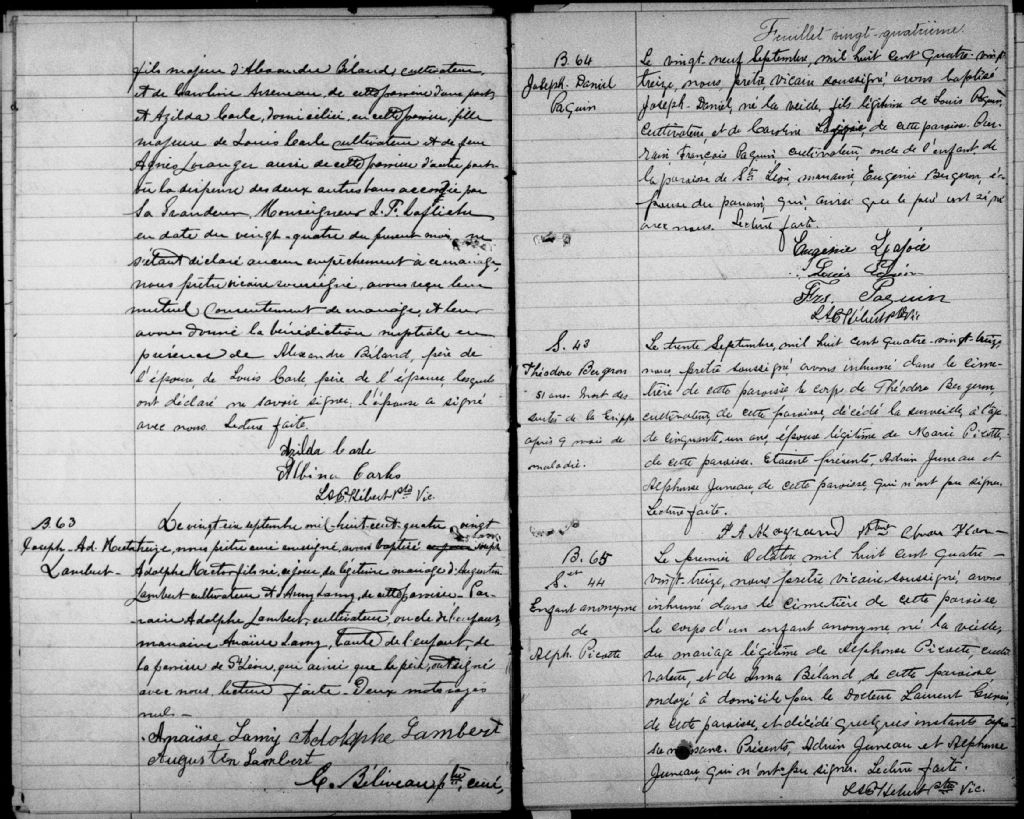 fils majeur d'Alexandre Béland, cultivateur,
et de Caroline Arseneau, de cette paroisse d'une part,
Et Azilda Carle, domiciliée, en cette paroisse, fille
majeure de Louis Carle cultivateur et de feue
Agnès Loranger aussi de cette paroisse d'autre part
vu la dispense des deux autres bans accordée par
Sa Grandeur, Monseigneur L. F. Laflèche
en date du vingt-quatre du présent mois, ne
s'étant déclaré aucun empêchement à ce mariage,
nous prêtre vicaire soussigné, avons reçu leur
mutuel consentement de mariage, et leur
avons donné la bénédiction nuptiale en
présence de Alexandre Béland, père de
l'époux, de Louis Carle, père de l'épouse lesquels
ont déclaré ne savoir signer, l'épouse a signé
avec nous. Lecture faite.
Azilda Carle
Albina Carle
L A C Hébert Ptre Vic.
B. 63
Joseph-Ad.
Lambert-
Le vingt six septembre mil-huit-cent-quatre vingt
treize, nous prêtre curé soussigné, avons baptisé
Adolphe fils né, du légitime mariage d'Augustin
Lambert cultivateur et Lamy, de cette paroisse- Par-
rain Adolphe Lambert, cultivateur, oncle de l'enfant,
marraine Anaïsse Lamy, tante de l'enfant, de
la paroisse de St Léon, qui ainsi que le père, ont signé
avec nous, lecture faite- Deux mots rayés
nuls-
Anaïsse Lamy Adolphe Lambert
Augustin Lambert
C. Béliveau ptre, curé,
Feuillet vingt-quatrième
B. 64
Joseph-Daniel
Paquin
Le vingt-neuf Septembre, mil huit cent quatre-vingt
treize, nous, prêtre, vicaire soussigné, avons baptisé
Joseph-Daniel, né la veille, fils légitime de Louis Paquin,
cultivateur, et de Caroline de cette paroisse. Par-
rain, François Paquin, cultivateur, oncle de l'enfant de
la paroisse de St. Léon, marraine, Eugénie Bergeron, é-
pouse du parrain, qui, ainsi que le père ont signé
avec nous. Lecture faite.
Eugénie Lajoie
Louis
Frs. Paquin
L A C Hébert Ptre Vic
S. 43
Théodore Bergeron
51 ans. Mort des
suites de la Grippe
après 9 mois de
maladie.
Le trente Septembre, mil huit cent quatre-vingt-treize,
nous, prêtre soussigné avons inhumé dans le cime-
tière de cette paroisse le corps de Théodore Bergeron
cultivateur, de cette paroisse, décédé la surveille, à l'âge
de cinquante-un ans, époux légitime de Marie Picotte,
de cette paroisse. Etaient présents, Adrien Juneau et
Alphonse Juneau, de cette paroisse, qui n'ont pu signer.
Lecture faite.
B. 65
S. et 44
Enfant anonyme
de
Alph. Picotte
Le premier Octobre mil huit cent quatre-
vingt-treize, nous prêtre vicaire soussigné, avons
inhumé dans le cimetière de cette paroisse
le corps d'un enfant anonyme né la veille,
du mariage légitime de Alphonse Picotte culti-
vateur, et de Anna Béland, de cette paroisse
ondoyé à domicile par le Docteur Laurent
de cette paroisse, et décédé quelques instants après
sa naissance. Présents, Adrien Juneau et Alphonse
Juneau, qui n'ont pu signer. Lecture faite.
L A C Hébert Ptre Vic.